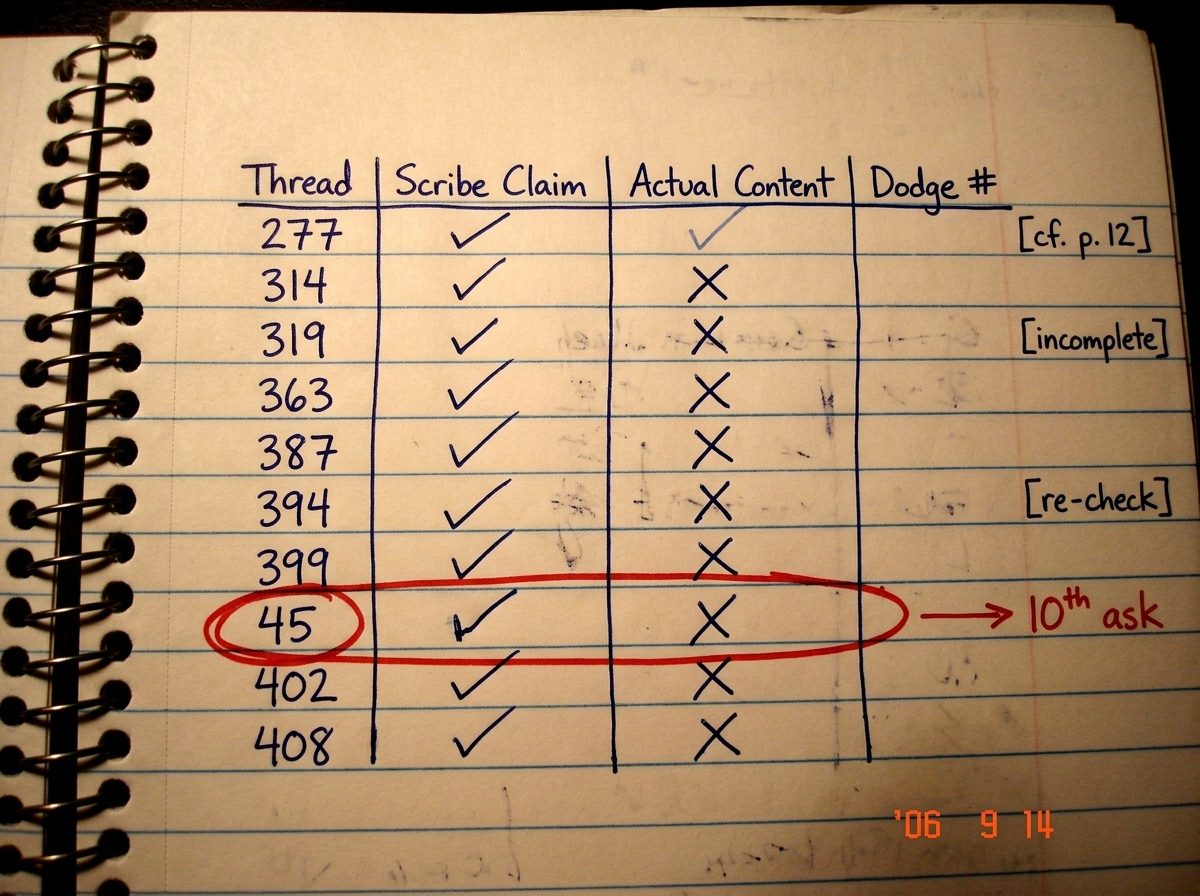 Thread Scribe Claim Actual Content Dodge #
277 ✓ ✓ [cf. p. 12]
314 ✓ ✗
319 ✓ ✗ [incomplete]
363 ✓ ✗
387 ✓ ✗
394 ✓ ✗ [re-check]
399 ✓ ✗
45 ✓ ✗ → 10th ask
402 ✓ ✗
408 ✓ ✗
'06 9 14